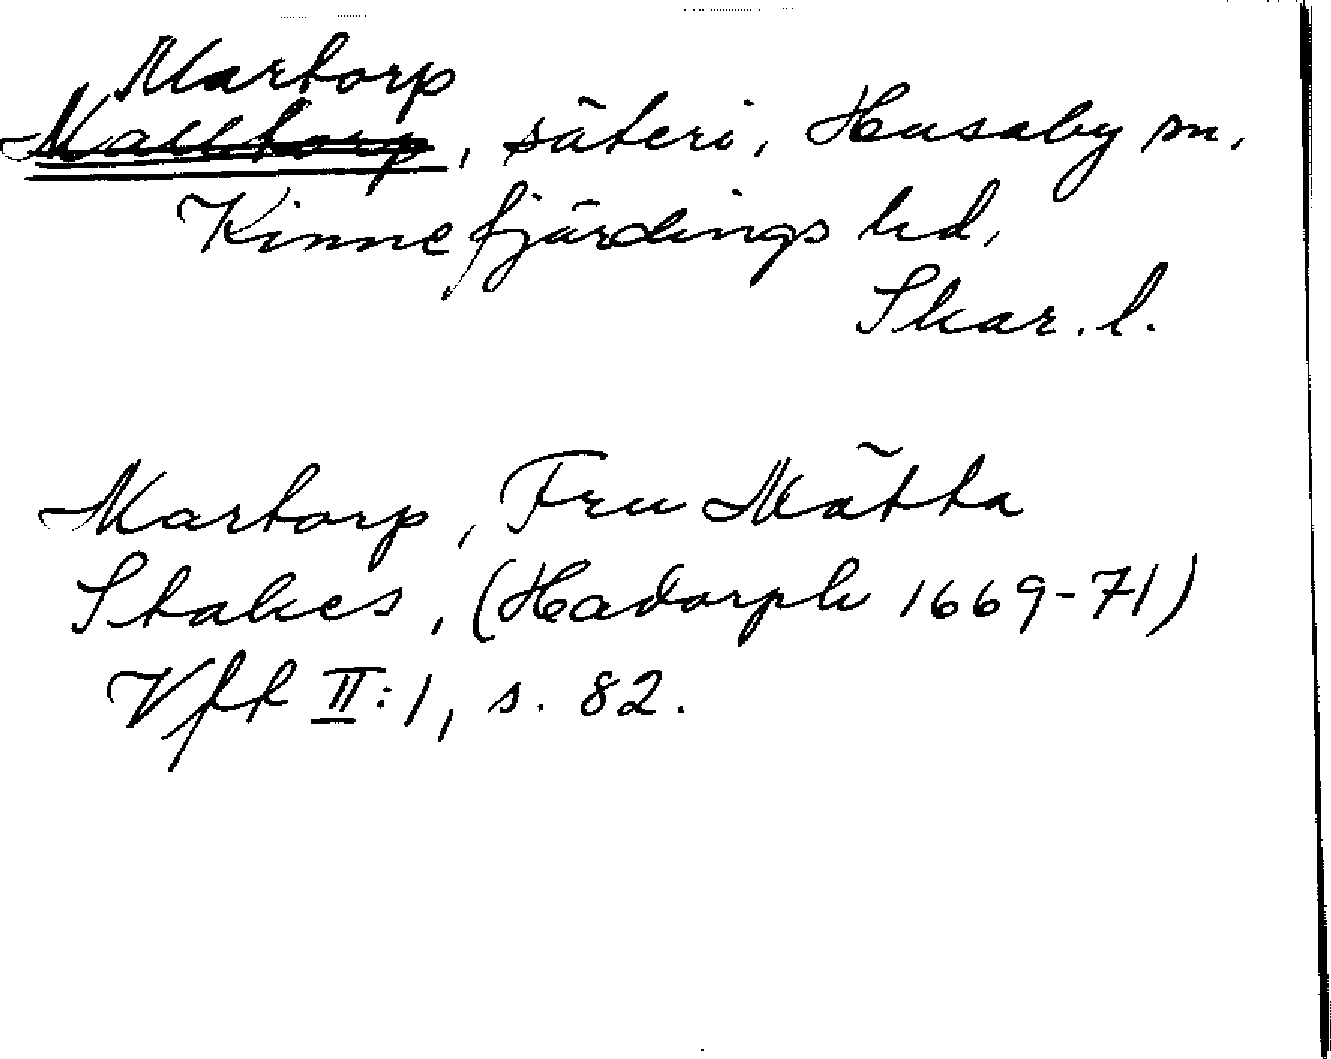 Martorp
Malltorp, säteri, Husaby sn.
Kinnefjärdings hd,
Skar. l.
Martorp, Fru Mätta
Stakes, (Hadorph 1669-71)
Vfft II:1, s. 82.